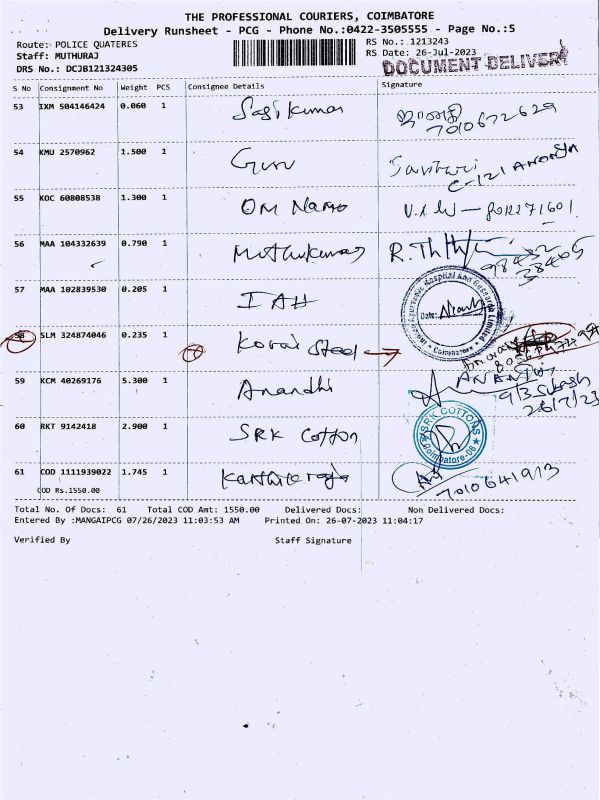 THE PROFESSIONAL COURIERS, COIMBATORE
Delivery Runsheet - PCG - Phone No.:0422-3505555 - Page No.:5
Route: POLICE QUATERES
RS No.: 1213243
Staff: MUTHURAJ
RS Date: 26-Jul-2023
DRS No.: DCJB121324305
DOCUMENT DELIVERY
S No Consignment No Weight PCS Consignee Details Signature
53 IXM 504146424 0.060 1 Sasikumar
7010672629
54 KMU 2570962 1.500 1 Guru
C-121 ANANYA
55 KOC 60808538 1.300 1 OM Namo
56 MAA 104332639 0.790 1 Muthukumar
98432
38405
57 MAA 102839530 0.205 1 IAH
Hospital And Research
Date:
Coimbatore
58 SLM 324874046 0.235 1 Kovai Steel
59 KCM 40269176 5.300 1 Anandhi
26/7/23
60 RKT 9142418 2.900 1 SRK Cotton
SRK COTTONS
Coimbatore-06
61 COD 1111939022 1.745 1
COD Rs.1550.00
7010641913
Total No. Of Docs: 61 Total COD Amt: 1550.00 Delivered Docs: Non Delivered Docs:
Entered By :MANGAIPCG 07/26/2023 11:03:53 AM Printed On: 26-07-2023 11:04:17
Verified By Staff Signature